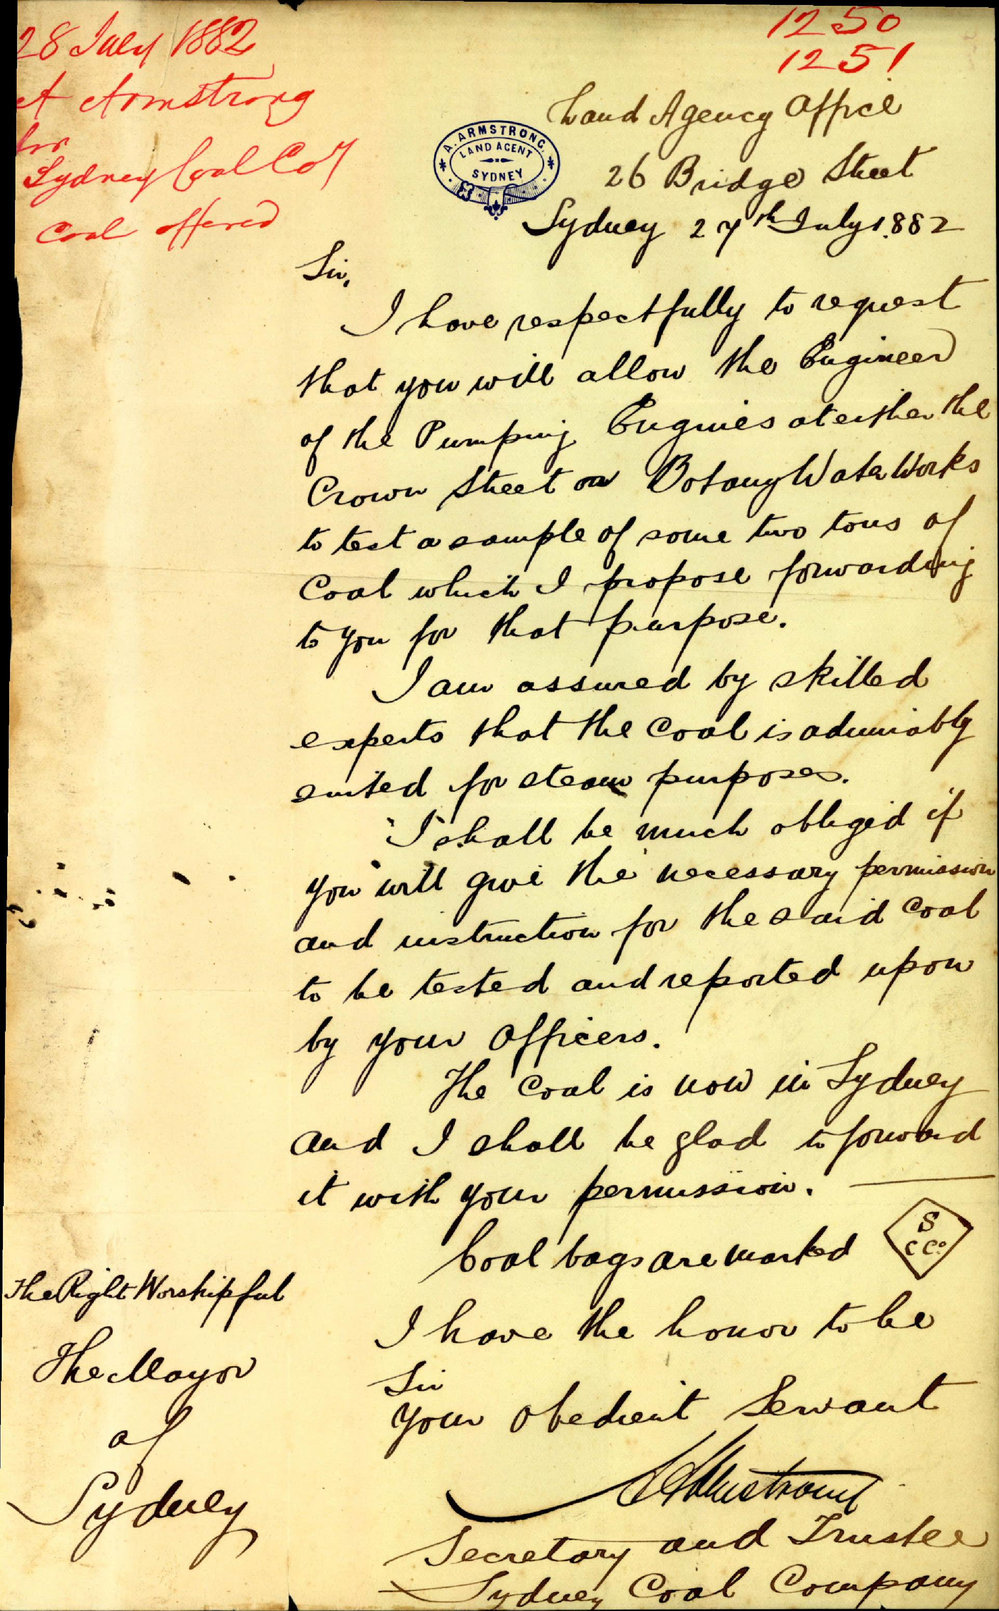 28 July 1882
A Armstrong
for
Sydney Coal Coy
Coal offered
1250
1251
A. ARMSTRONG.
LAND AGENT
SYDNEY
Land Agency Office
26 Bridge Street
Sydney 27th July 1882
Sir,
I have respectfully to request
that you will allow the Engineer
of the Pumping Engines at either the
Crown Street or Botany Water Works
to test a sample of some two tons of
Coal which I propose forwarding
to you for that purpose.
I am assured by skilled
experts that the Coal is admirably
suited for steam purposes.
I shall be much obliged if
you will give the necessary permission
and instruction for the said Coal
to be tested and reported upon
by your Officers.
The Coal is now in Sydney
and I shall be glad to forward
it with your permission.
Coal bags are marked
S
C Co.
I have the honor to be
Sir
Your obedient Servant
A Armstrong
Secretary and Trustee
Sydney Coal Company
The Right Worshipful
The Mayor
of
Sydney